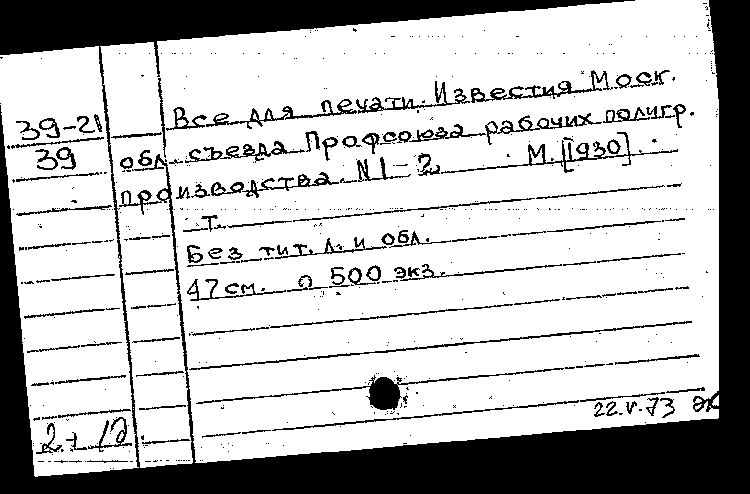 39-21
39
Все для печати. Известия Моск.
обл. съезда Профсоюза рабочих полигр.
производства. N 1-2 М. [1930].
т.
Без тит. л. и обл.
47 см. по 500 экз.
22.V.73